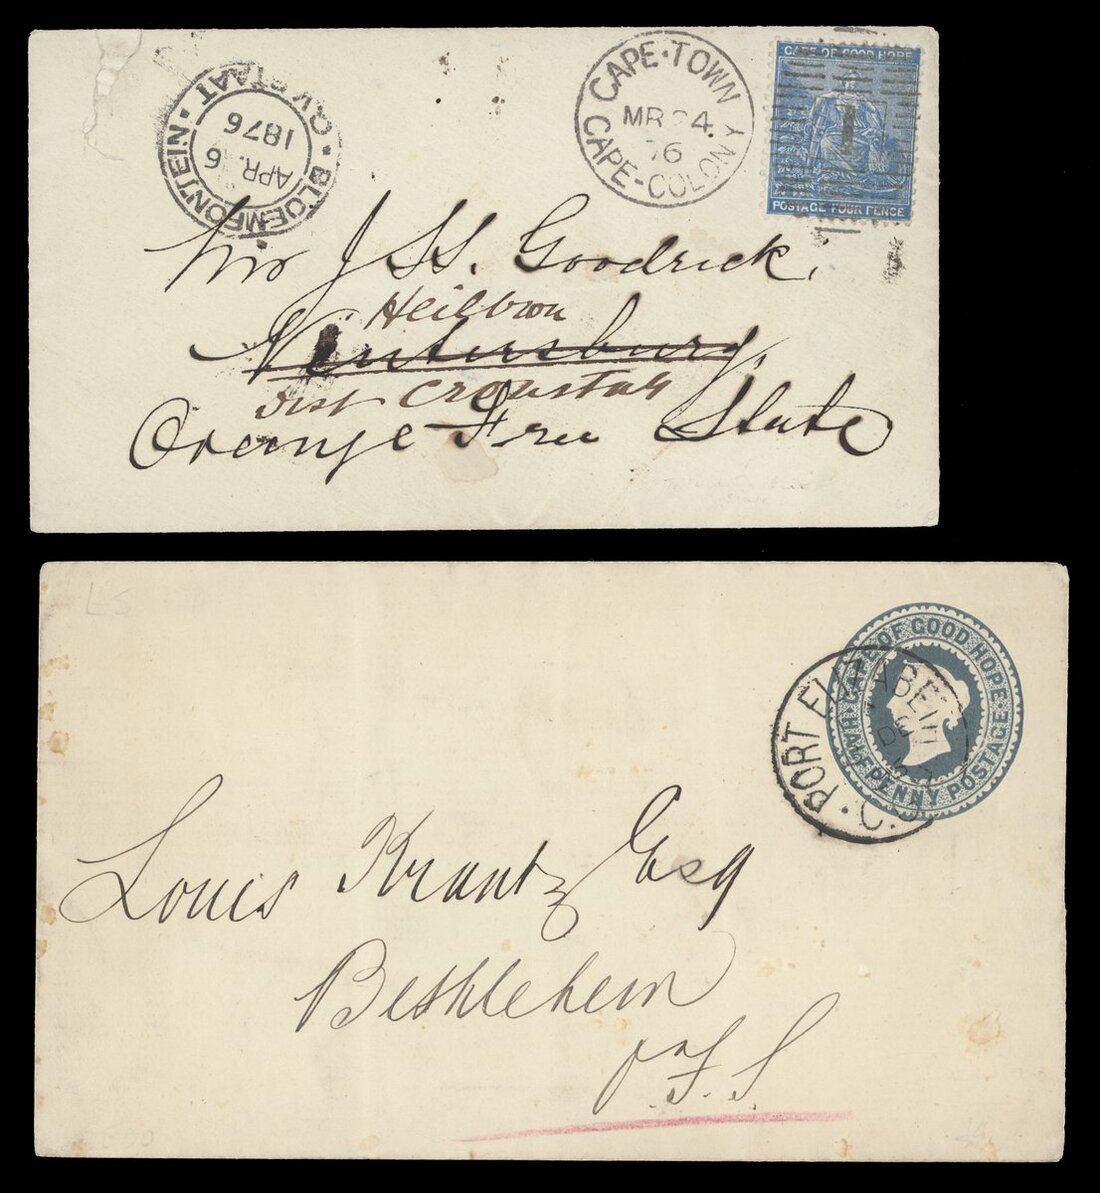 BLOEMFONTEIN · O.V. STAAT ·
APR. 6
1876
CAPE·TOWN
MR 24
76
CAPE-COLONY
CAPE OF GOOD HOPE
1
POSTAGE FOUR PENCE
J. H. Goodrick.
Heilbron
Wintersburg,
Dist Cronstad
Orange Free State
LS
CAPE OF GOOD HOPE
HALF PENNY POSTAGE
PORT ELIZABETH
DE
Louis Krantz Esq
Bethlehem
O.F.S